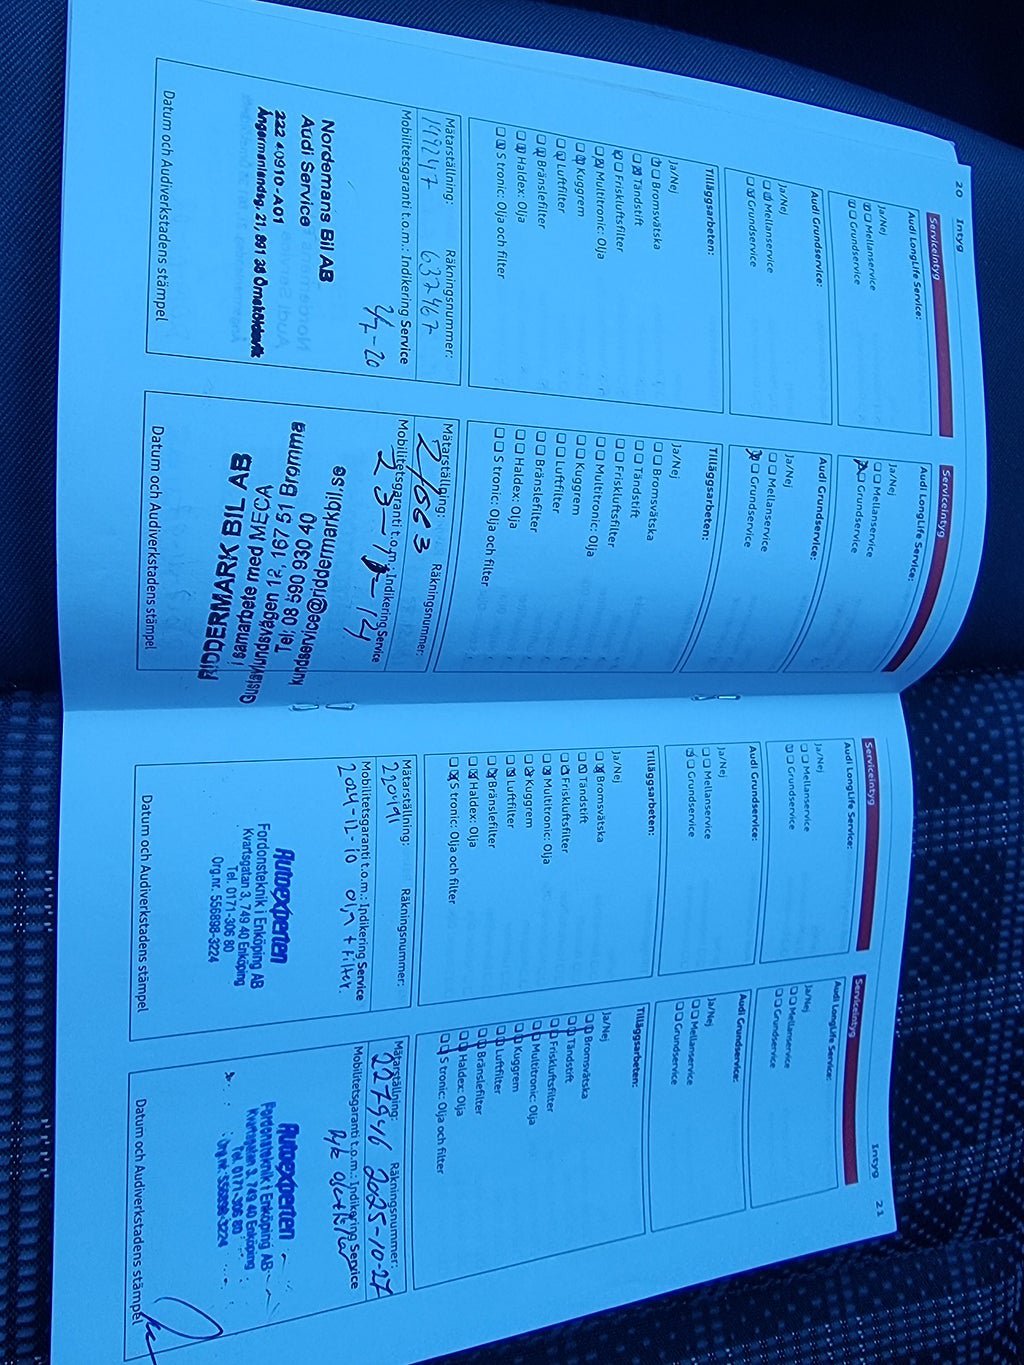 20 Intyg
Serviceintyg
Audi LongLife Service:
Ja/Nej
Mellanservice
Grundservice
Audi Grundservice:
Ja/Nej
Mellanservice
Grundservice
Tilläggsarbeten:
Ja/Nej
Bromsvätska
Tändstift
Friskluftsfilter
Multitronic: Olja
Kuggrem
Luftfilter
Bränslefilter
Haldex: Olja
S tronic: Olja och filter
Mätarställning: Räkningsnummer:
632467
Mobilitetsgaranti t.o.m.: Indikering Service
2/7-20
Nordemans Bil AB
Audi Service
222 40910-A01
Ångermanlandsg. 21, 891 38 Örnsköldsvik
Datum och Audiverkstadens stämpel
Serviceintyg
Audi LongLife Service:
Ja/Nej
Mellanservice
Grundservice
Audi Grundservice:
Ja/Nej
Mellanservice
Grundservice
Tilläggsarbeten:
Ja/Nej
Bromsvätska
Tändstift
Friskluftsfilter
Multitronic: Olja
Kuggrem
Luftfilter
Bränslefilter
Haldex: Olja
S tronic: Olja och filter
Mätarställning: Räkningsnummer:
Mobilitetsgaranti t.o.m.: Indikering Service
kundservice@riddermarkbil.se
Tel 08 590 930 40
12, 167 51 Bromma
i samarbete med MECA
RIDDERMARK BIL AB
Datum och Audiverkstadens stämpel
Intyg 21
Serviceintyg
Audi LongLife Service:
Ja/Nej
Mellanservice
Grundservice
Audi Grundservice:
Ja/Nej
Mellanservice
Grundservice
Tilläggsarbeten:
Ja/Nej
Bromsvätska
Tändstift
Friskluftsfilter
Multitronic: Olja
Kuggrem
Luftfilter
Bränslefilter
Haldex: Olja
S tronic: Olja och filter
Mätarställning: Räkningsnummer:
220191
Mobilitetsgaranti t.o.m.: Indikering Service
2024-12-10 olja + Filter.
Autoexperten
Fordonsteknik i Enköping AB
Kvartsgatan 3, 749 40 Enköping
Tel. 0171-306 80
Org.nr. 556898-3224
Datum och Audiverkstadens stämpel
Serviceintyg
Audi LongLife Service:
Ja/Nej
Mellanservice
Grundservice
Audi Grundservice:
Ja/Nej
Mellanservice
Grundservice
Tilläggsarbeten:
Ja/Nej
Bromsvätska
Tändstift
Friskluftsfilter
Multitronic: Olja
Kuggrem
Luftfilter
Bränslefilter
Haldex: Olja
S tronic: Olja och filter
Mätarställning: Räkningsnummer:
227946 2025-10-27
Mobilitetsgaranti t.o.m.: Indikering Service
Autoexperten
Fordonsteknik i Enköping AB
Kvartsgatan 3, 749 40 Enköping
Tel. 0171-306 80
Org.nr. 556898-3224
Datum och Audiverkstadens stämpel